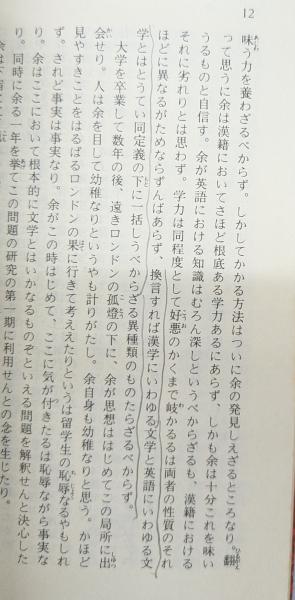 12
味う力を養わざるべからず。しかしてかかる方法はついに余の発見しえざるところなり。翻
って思うに余は漢籍においてさほど根底ある学力あるにあらず、しかも余は十分これを味い
うるものと自信す。余が英語における知識はむろん深しというべからざるも、漢籍における
それに劣れりとは思わず。学力は同程度として好悪のかくまで岐かるるは両者の性質のそれ
ほどに異なるがためならずんばあらず、換言すれば漢学にいわゆる文学と英語にいわゆる文
学とはとうてい同定義の下に一括しうべからざる異種類のものたらざるべからず。
大学を卒業して数年の後、遠きロンドンの孤燈の下に、余が思想ははじめてこの局所に出
会せり。人は余を目して幼稚なりというやも計りがたし。余自身も幼稚なりと思う。かほど
見やすきことをはるばるロンドンの果に行きて考ええたりというは留学生の恥辱なるやもしれ
ず。されど事実は事実なり。余がこの時はじめて、ここに気が付きたるは恥辱ながら事実な
り。余はここにおいて根本的に文学とはいかなるものぞといえる問題を解釈せんと決心した
り。同時に余る一年を挙てこの問題の研究の第一期に利用せんとの念を生じたり。